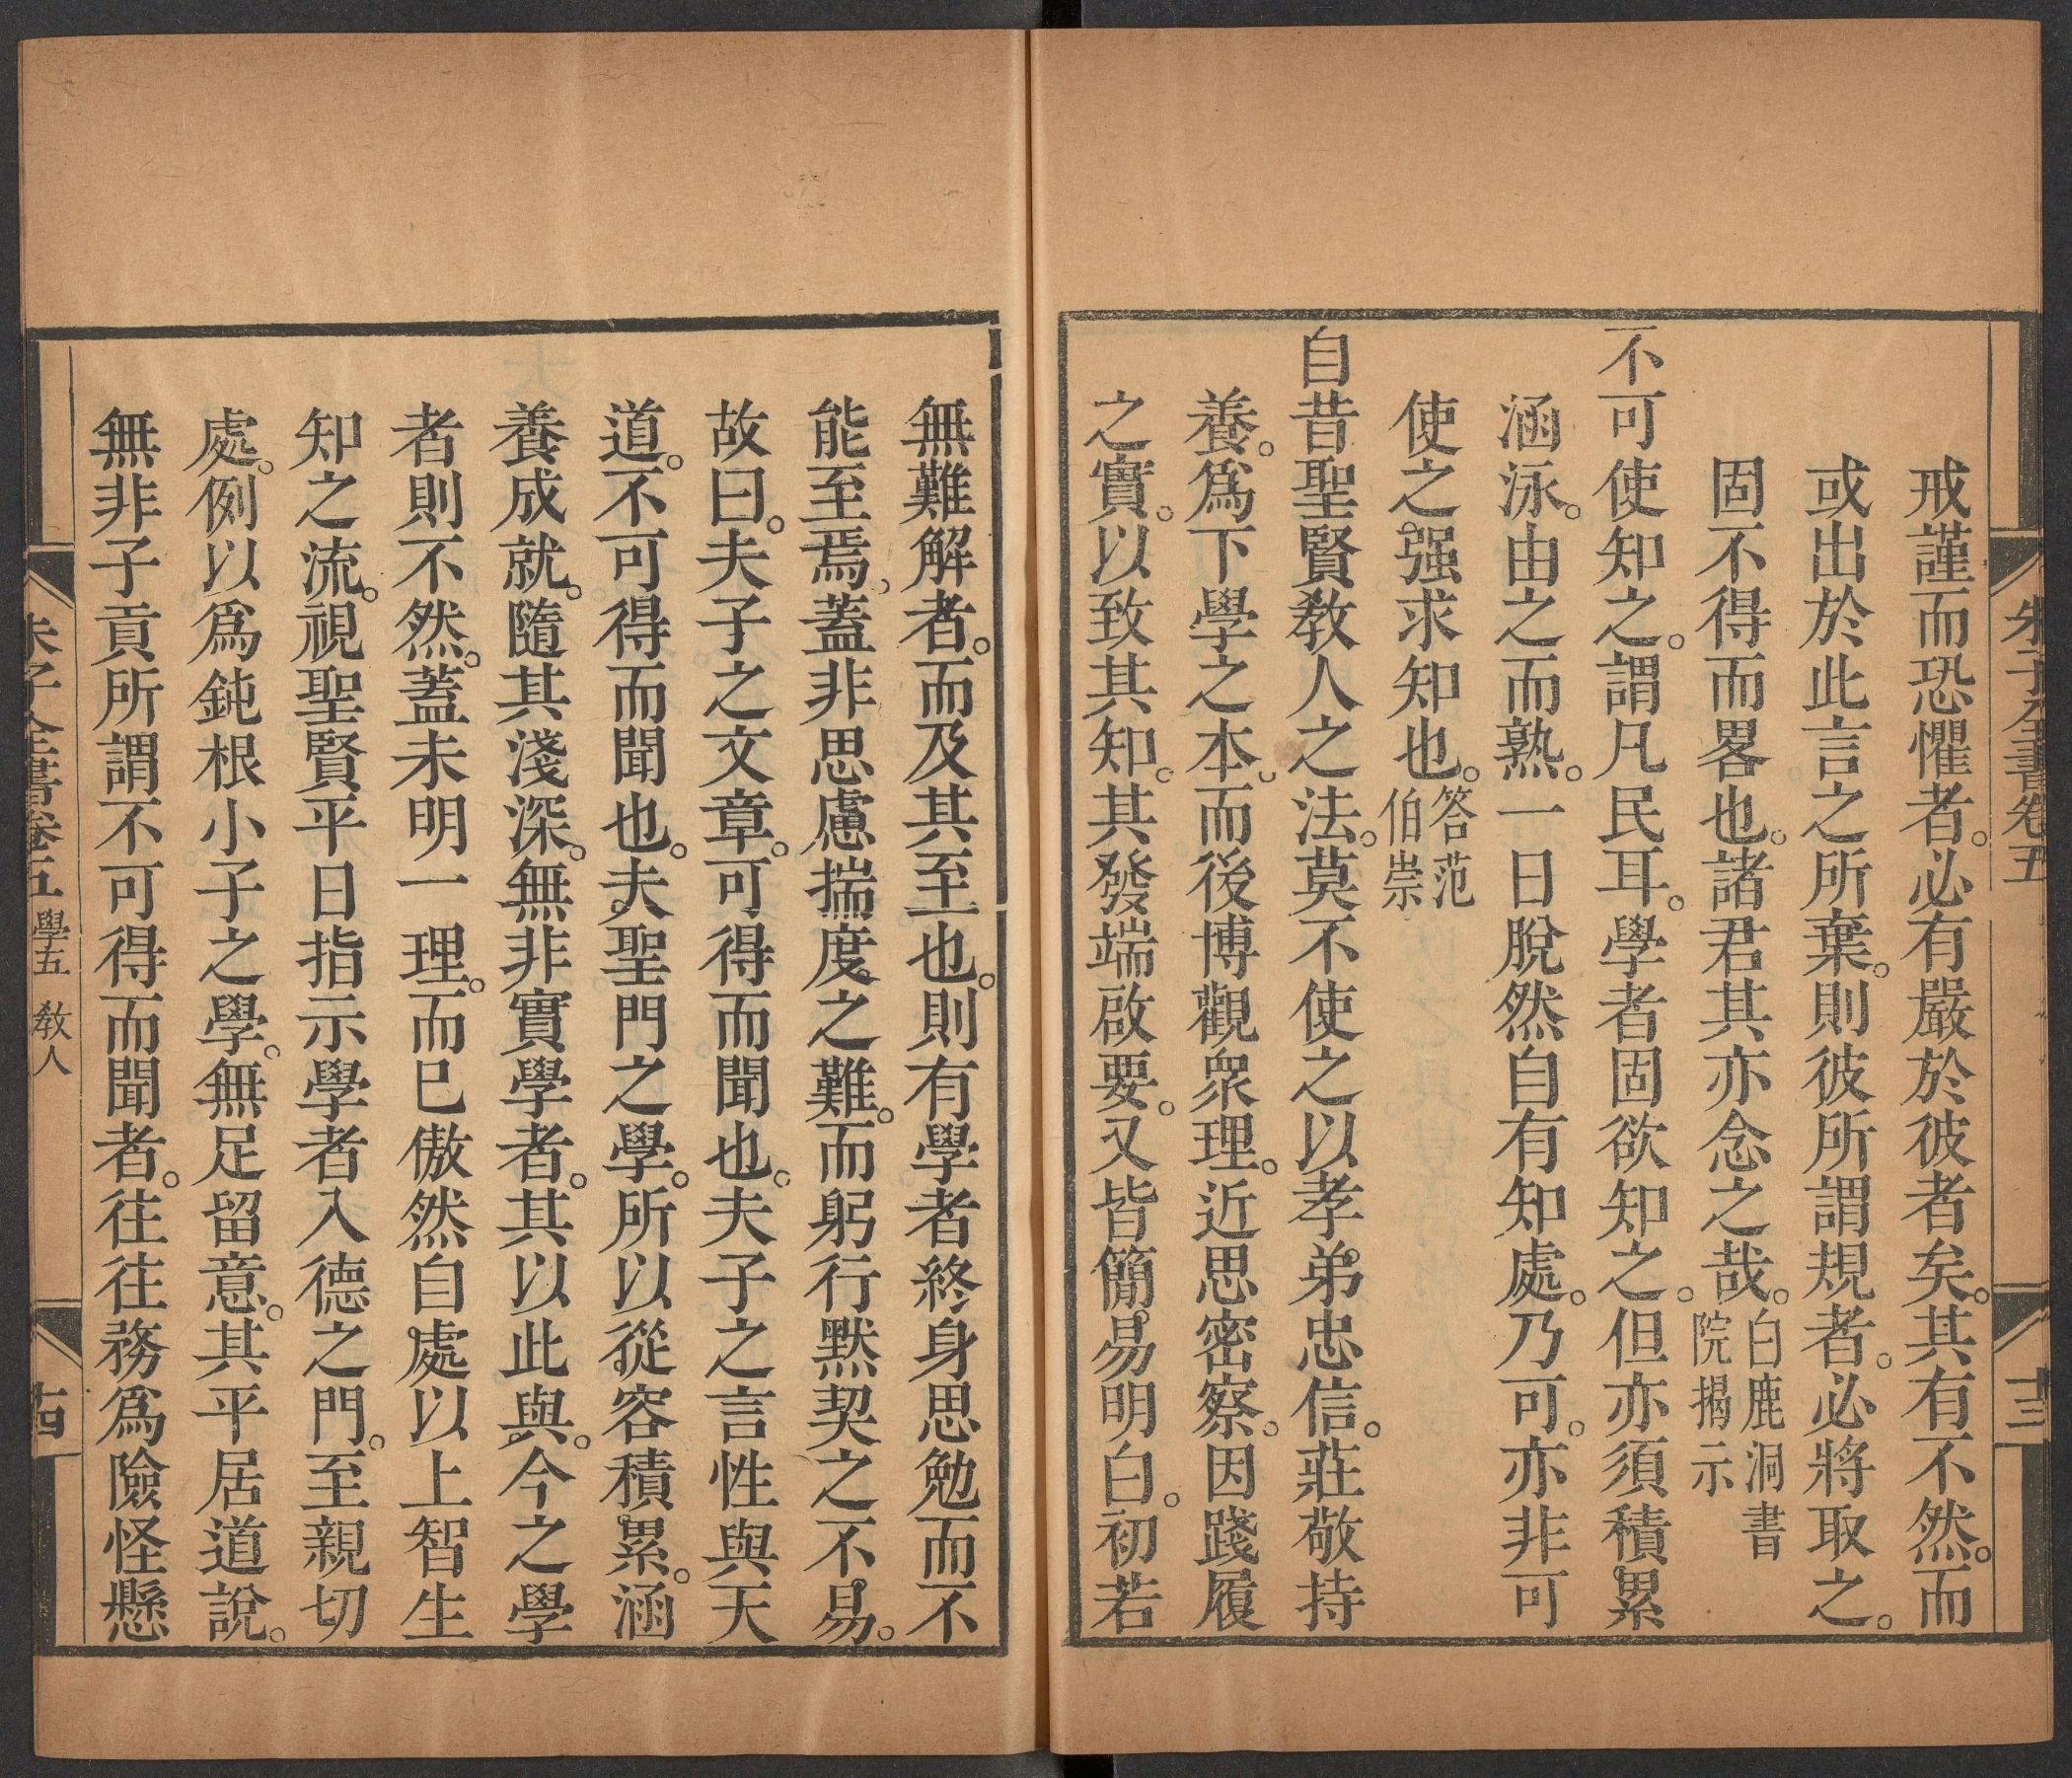 朱子全書卷五
十三
戒謹而恐懼者。必有嚴於彼者矣。其有不然。而
或出於此言之所棄。則彼所謂規者。必將取之。
固不得而畧也。諸君其亦念之哉。白鹿洞書院揭示
不可使知之。謂凡民耳。學者固欲知之。但亦須積累
涵泳。由之而熟。一日脫然自有知處。乃可。亦非可
使之强求知也。答范伯崇
自昔聖賢教人之法。莫不使之以孝弟忠信。莊敬持
養。爲下學之本。而後博觀衆理。近思密察。因踐履
之實。以致其知。其發端啟要。又皆簡易明白。初若
無難解者。而及其至也。則有學者終身思勉而不
能至焉。蓋非思慮揣度之難。而躬行默契之不易。
故曰。夫子之文章。可得而聞也。夫子之言性與天
道。不可得而聞也。夫聖門之學。所以從容積累。涵
養成就。隨其淺深。無非實學者。其以此與。今之學
者則不然。蓋未明一理。而已傲然自處以上智生
知之流。視聖賢平日指示學者入德之門。至親切
處。例以爲鈍根小子之學。無足留意。其平居道說。
無非子貢所謂不可得而聞者。往往務爲險怪懸
朱子全書卷五 學五 教人
十四